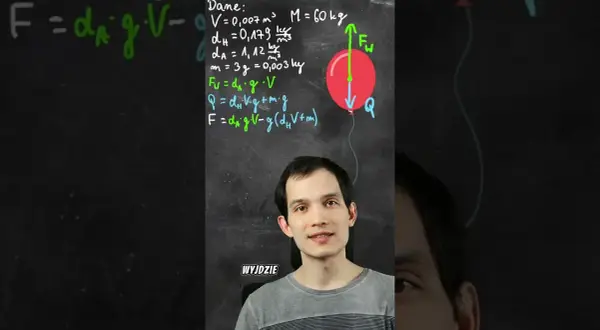 Dane:
V = 0,007 m³ M = 60 kg
d_H = 0,179 kg/m³
d_A = 1,12 kg/m³
m = 3 g = 0,003 kg
F_W = d_A · g · V
Q = d_H V · g + m · g
F = d_A · g · V − g (d_H V + m)
F_W
Q
WYJDZIE
F = d_A · g · V
d_H V + m)